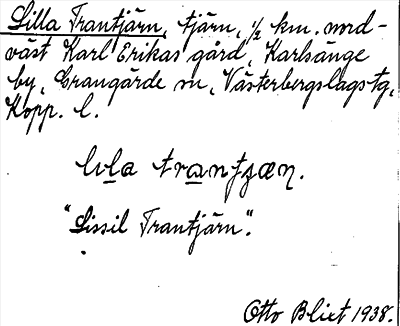 Lilla Trantjärn, tjärn, ½ km. nord-
väst Karl Erikas gård, Karlsänge
by, Grangärde sn, Västerbergslags tg,
Kopp. l.
"Lissil Trantjärn".
Otto Blixt 1938.